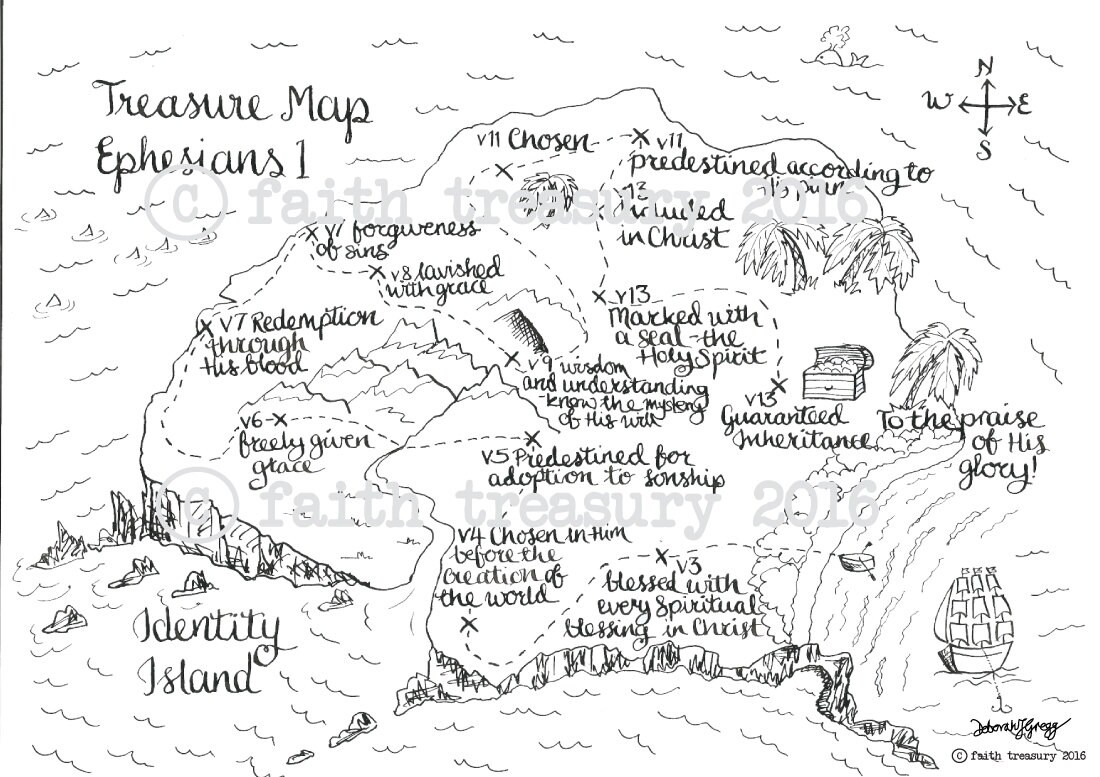 Treasure Map
Ephesians 1
N
W
E
S
v11 Chosen
v11
predestined according to
included
in Christ
v7 forgiveness
of sins
v8 lavished
with grace
v13
Marked with
a seal - the
Holy Spirit
v7 Redemption
through
His blood
v9 wisdom
and understanding
- know the mystery
of His will
v13
Guaranteed
Inheritance
To the praise
of His
glory!
v6-
freely given
grace
v5 Predestined for
adoption to sonship
v4 Chosen in Him
before the
creation of
the world
v3
blessed with
every spiritual
blessing in Christ
Identity
Island
Deborah J Gregg
© faith treasury 2016
© faith treasury 2016
© faith treasury 2016